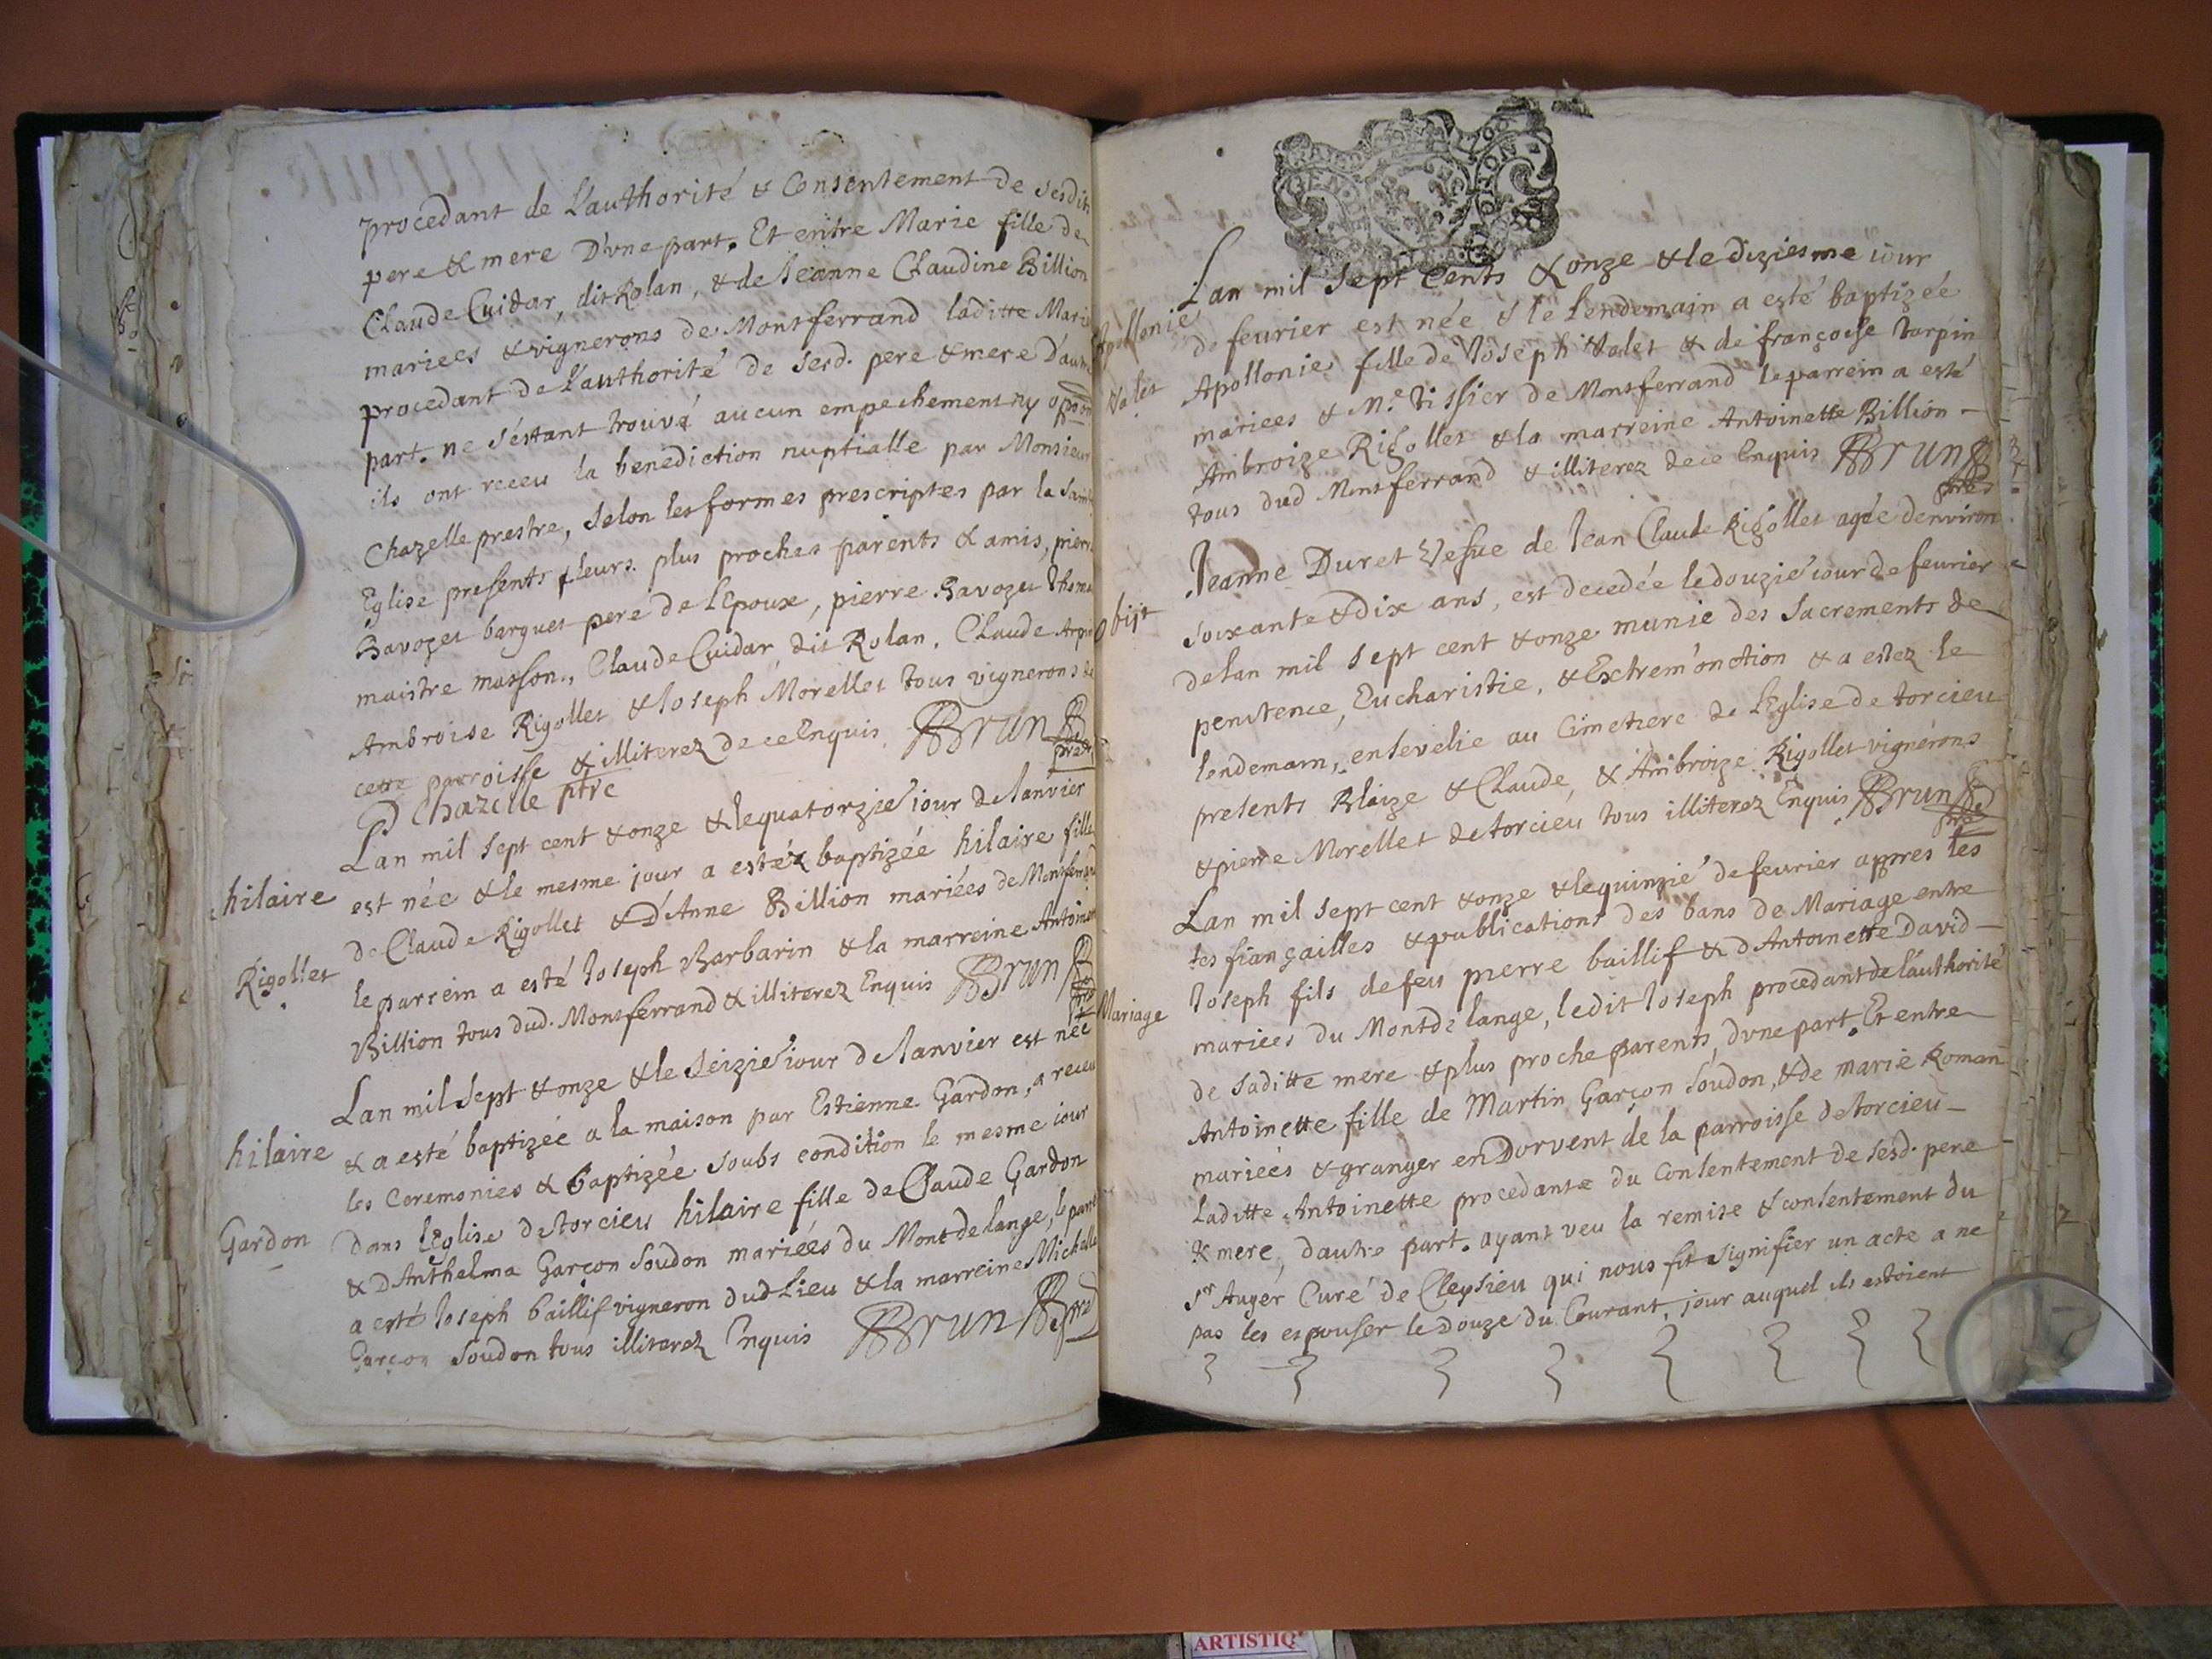 procedant de L'authorité & Consentement de sesdits
pere & mere D'vne part. Et entre Marie fille de
Claude Cuidar, dit Rolan, & de Jeanne Claudine Billion
mariees & vignerons de Montferrand laditte Marie
procedant de L'authorité de sesd. pere & mere D'autre
part. ne s'estant trouvé aucun empechement ny oppon
ils ont receu la benediction nuptialle par Monsieur
Chazelle prestre, selon les formes prescriptes par la Sainte
Eglise presents leurs plus proches parents & amis, pierre
Savozet barguet pere de l'Epoux, pierre Savozet Thomas
maistre masson., Claude Cuidar dit Rolan, Claude
Ambroise Rigollet & Joseph Morellet tous vignerons de
cette parroisse & illiterez de ce Enquis. BBrun
pre
Chazelle ptre
hilaire
Rigollet
Lan mil sept cent & onze & le quatorzie iour de Janvier
est née & le mesme jour a estéz baptizée hilaire fille
de Claude Rigollet & D'Anne Billion mariées de Montferrand
le parrein a esté Joseph Barbarin & la marreine Antoinette
Billion tous dud. Montferrand & illiterez Enquis BBrun
hilaire
Gardon
Lan mil sept & onze & le Seizie iour de Janvier est née
& a esté baptizée a la maison par Estienne Gardon, a receu
les Ceremonies & baptizée soubs condition le mesme iour
dans l'Eglise de torcieu hilaire fille de Claude Gardon
& D'Anthelma Garçon Soudon mariées du Montdelange, le parr
a esté Joseph baillif vigneron dud Lieu & la marreine Michelle
Garçon Soudon tous illiterez Enquis BBrun pre
GEN
Apollonie
Valet
Lan mil Sept Cents & onze & le diziesme iour
de feurier est née & le lendemain a esté baptizée
Apollonie fille de Joseph Valet & de françoise tarpin
mariees & Me. tissier de Montferrand le parrein a esté
Ambroize Rigollet & la marreine Antoinette Billion
tous dud Montferrand & illiterez de ce Enquis BBrun
pre
obijt
Jeanne Duret Vefue de Jean Claude Rigollet agée denviron
soixante & dix ans, est decedée le douzie iour de feurier
de lan mil sept cent & onze munie des Sacrements de
penitence, Eucharistie, & Extrem'onction & a estez le
lendemain, ensevelie au Cimetiere de l'Eglise de torcieu
presents Blaize & Claude, & Ambroize Rigollet vignerons
& pierre Morellet de torcieu tous illiterez Enquis BBrun
pre
Mariage
Lan mil sept cent & onze & le quinzie de feurier appres les
les fiançailles & publications des bans de Mariage entre
Joseph fils de feu pierre baillif & d'Antoinette David
mariees du Montdelange, ledit Joseph procedant de l'authorité
de saditte mere & plus proche parents, dvne part. Et entre
Antoinette fille de Martin Garçon Soudon, & de marie Roman
mariees & granger en Dorvent de la parroisse de torcieu
laditte Antoinette procedante du Consentement de sesd. pere
& mere, dautre part. ayant veu la remise & consentement du
Sr Auger Curé de Cleysieu qui nous fit signifier un acte a ne
pas les espouser le douze du Courant, jour auquel ils estoient
ARTISTIQ